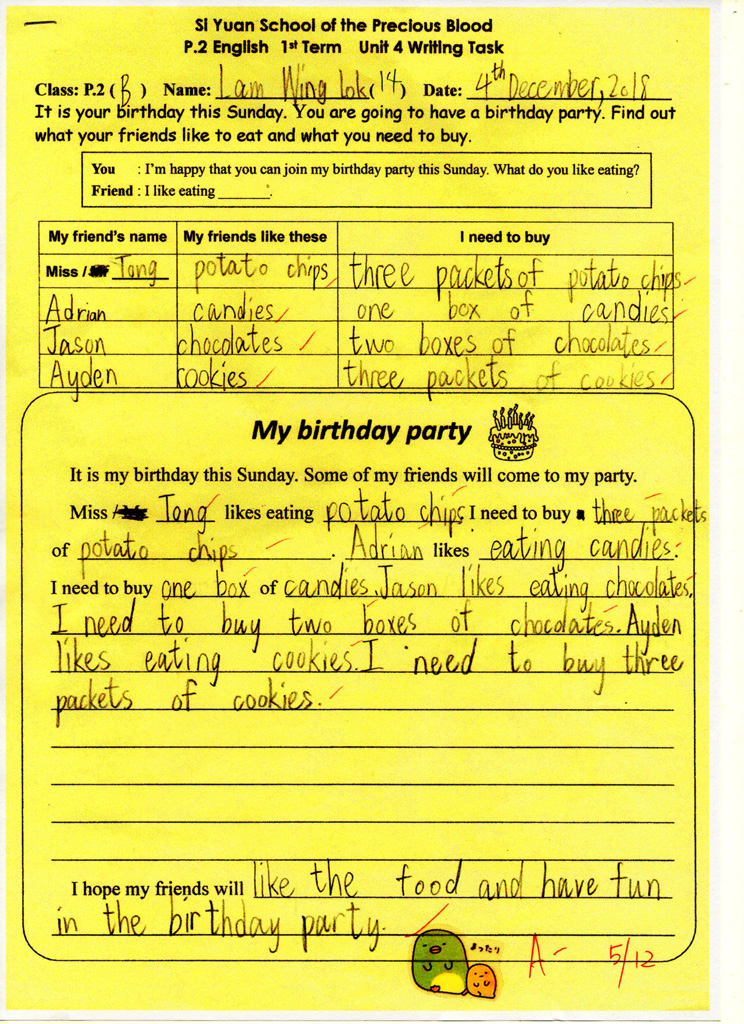 Si Yuan School of the Precious Blood
P.2 English 1st Term Unit 4 Writing Task
Class: P.2 ( B ) Name: Lam Wing Lok (14) Date: 4th December, 2018
It is your birthday this Sunday. You are going to have a birthday party. Find out
what your friends like to eat and what you need to buy.
You : I'm happy that you can join my birthday party this Sunday. What do you like eating?
Friend : I like eating _______.
My friend's name My friends like these I need to buy
Miss / Tong potato chips three packets of potato chips
Adrian candies one box of candies
Jason chocolates two boxes of chocolates
Ayden cookies three packets of cookies
My birthday party
It is my birthday this Sunday. Some of my friends will come to my party.
Miss / Tong likes eating potato chips. I need to buy three packets
of potato chips. Adrian likes eating candies.
I need to buy one box of candies. Jason likes eating chocolates.
I need to buy two boxes of chocolates. Ayden
likes eating cookies. I need to buy three
packets of cookies.
I hope my friends will like the food and have fun
in the birthday party.
まったり
A- 5/12